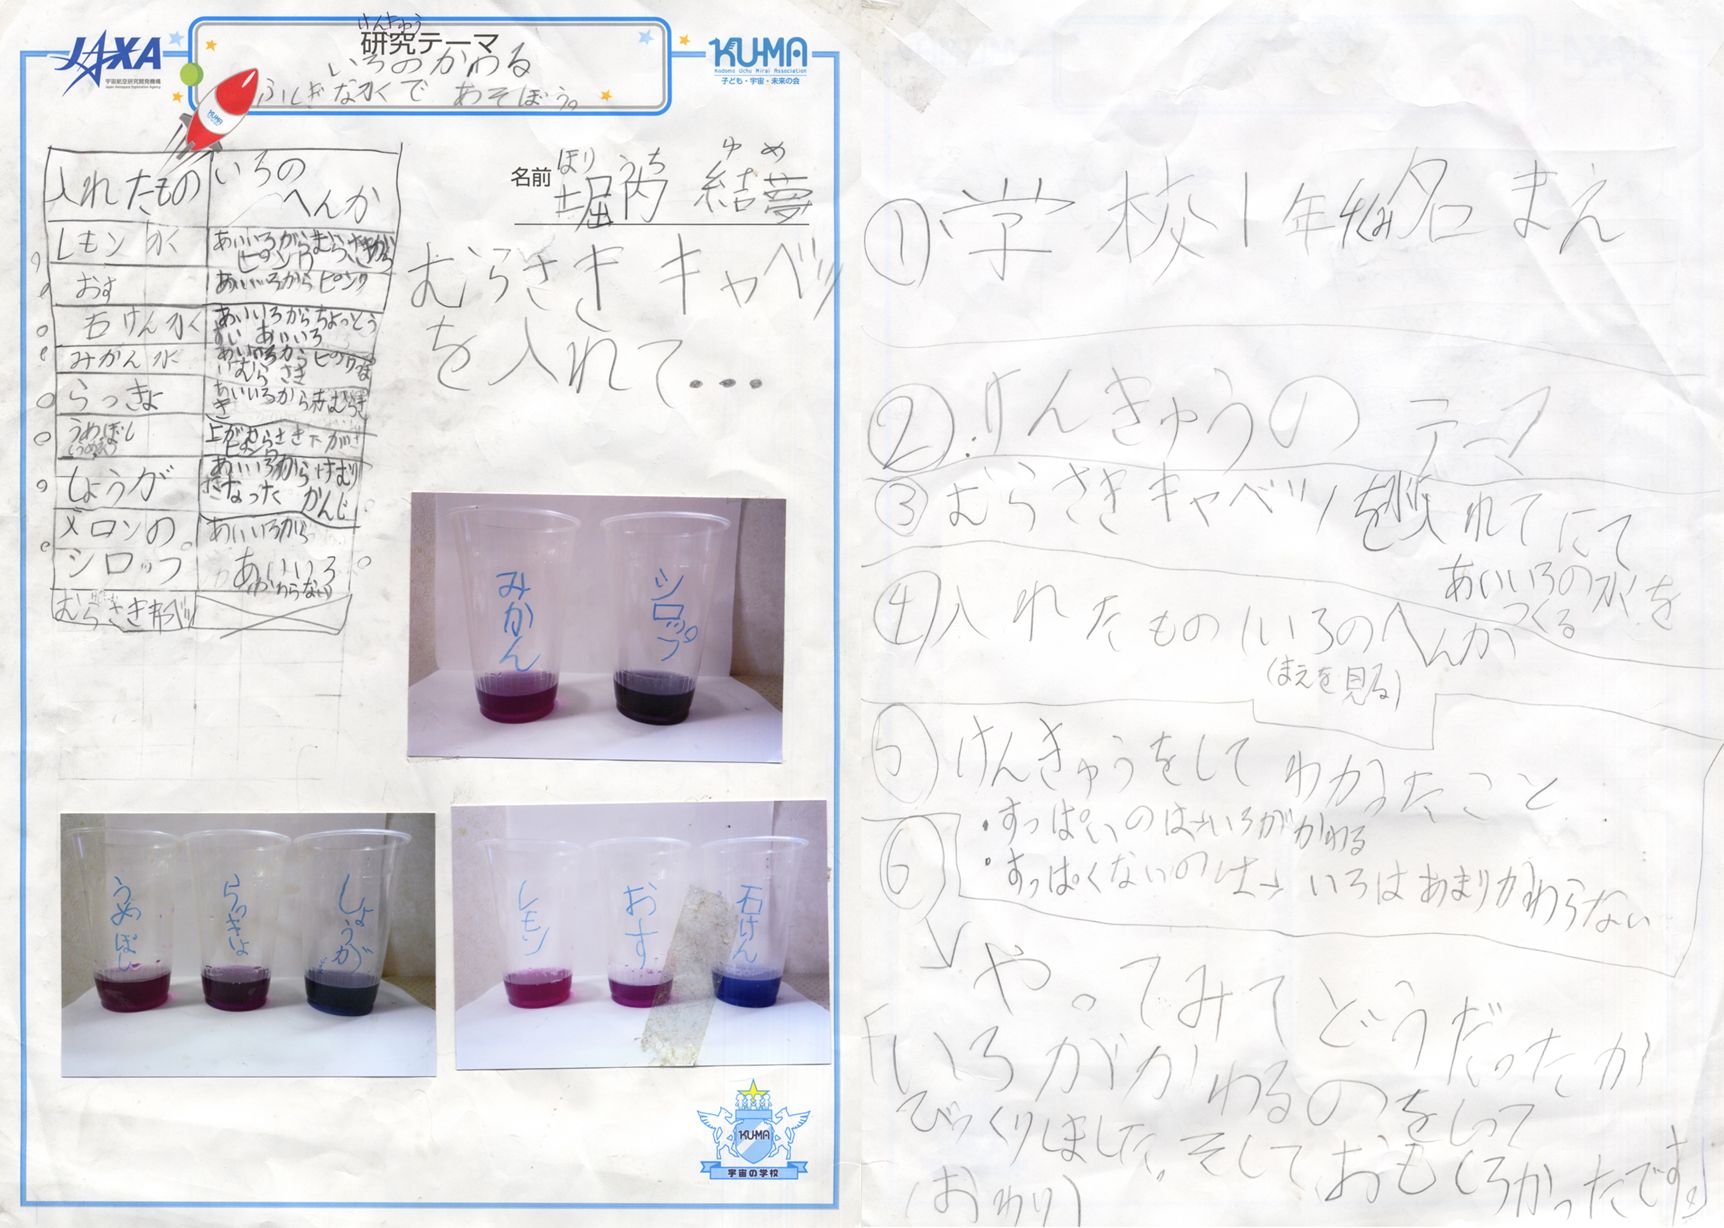 JAXA
宇宙航空研究開発機構
Japan Aerospace Exploration Agency
けんきゅう
研究テーマ
いろのかわる
ふしぎな水で あそぼう。
KUMA
Kodomo Uchu Mirai Association
子ども・宇宙・未来の会
KUMA
名前
ほり うち ゆ め
堀内 結夢
入れたもの
いろの
へんか
レモン水
あいいろからむらさきから
ピンク
おす
あいいろからピンク
石けん水
あいいろからちょっとう
すい あいいろ
みかん水
あいいろから ピンクっぽ
いむらさき
らっきょ
あいいろから赤むらさ
き
うめぼし
しょうが
あいいろから
なった かんじ
メロンの
シロップ
あいいろから
あいいろ
(かわらない)
むらさきキャベツ
むらさき キャベツ
を入れて…
みかん
シロップ
うめぼし
らっきょ
しょうが
レモン
おす
石けん
KUMA
宇宙の学校
① 学校 1年 名まえ
② けんきゅうの テーマ
③ むらさきキャベツを 入れて にて
あいいろの水を
つくる
④ 入れたもの いろのへんか
(まえを見る)
⑤ けんきゅうをして わかったこと
・すっぱいのは→いろがかわる
・すっぱくないのは→ いろはあまりかわらない
⑥
やってみてどうだったか
「いろがかわるのをしって
びっくりしました。そして、おもしろかったです。」
(おわり)